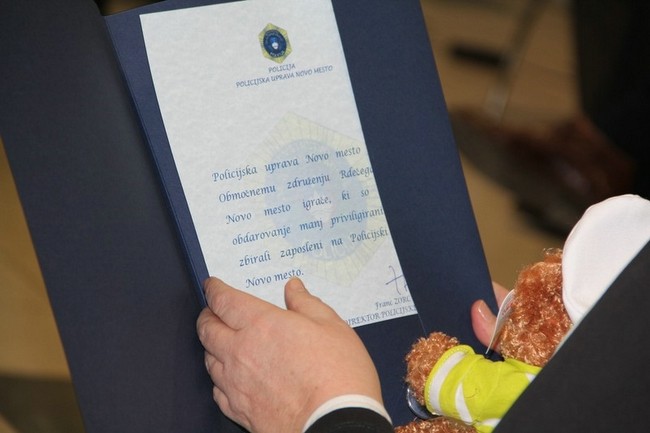 POLICIJA
POLICIJSKA UPRAVA NOVO MESTO
Policijska uprava Novo mesto
Območnemu združenju Rdečega
Novo mesto igrače, ki so
obdarovanje manj priviligirani
zbirali zaposleni na Policijski
Novo mesto.
Franc
DIREKTOR POLICIJSK